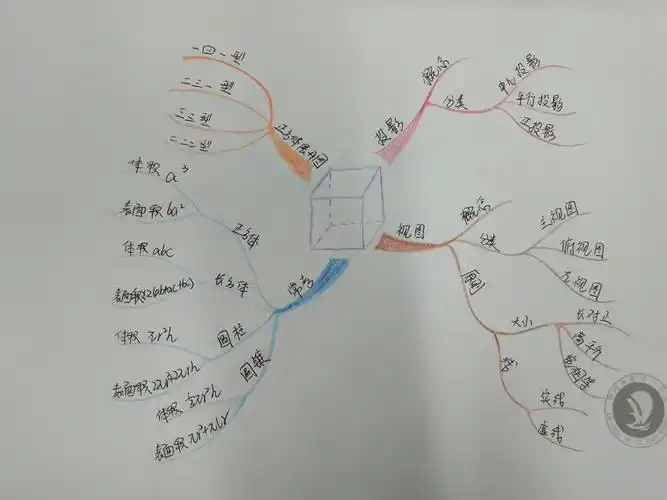 一四一型
二三一型
三三型
二二二型
正方体展开图
投影
概念
分类
中心投影
平行投影
正投影
视图
概念
分类
主视图
俯视图
左视图
画图
大小
长对正
高平齐
宽相等
线
实线
虚线
常见
正方体
体积 a³
表面积 6a²
长方体
体积 abc
表面积 2(ab+ac+bc)
圆柱
体积 πr²h
表面积 2πr²+2πrh
圆锥
体积 ⅓πr²h
表面积 πr²+πlr